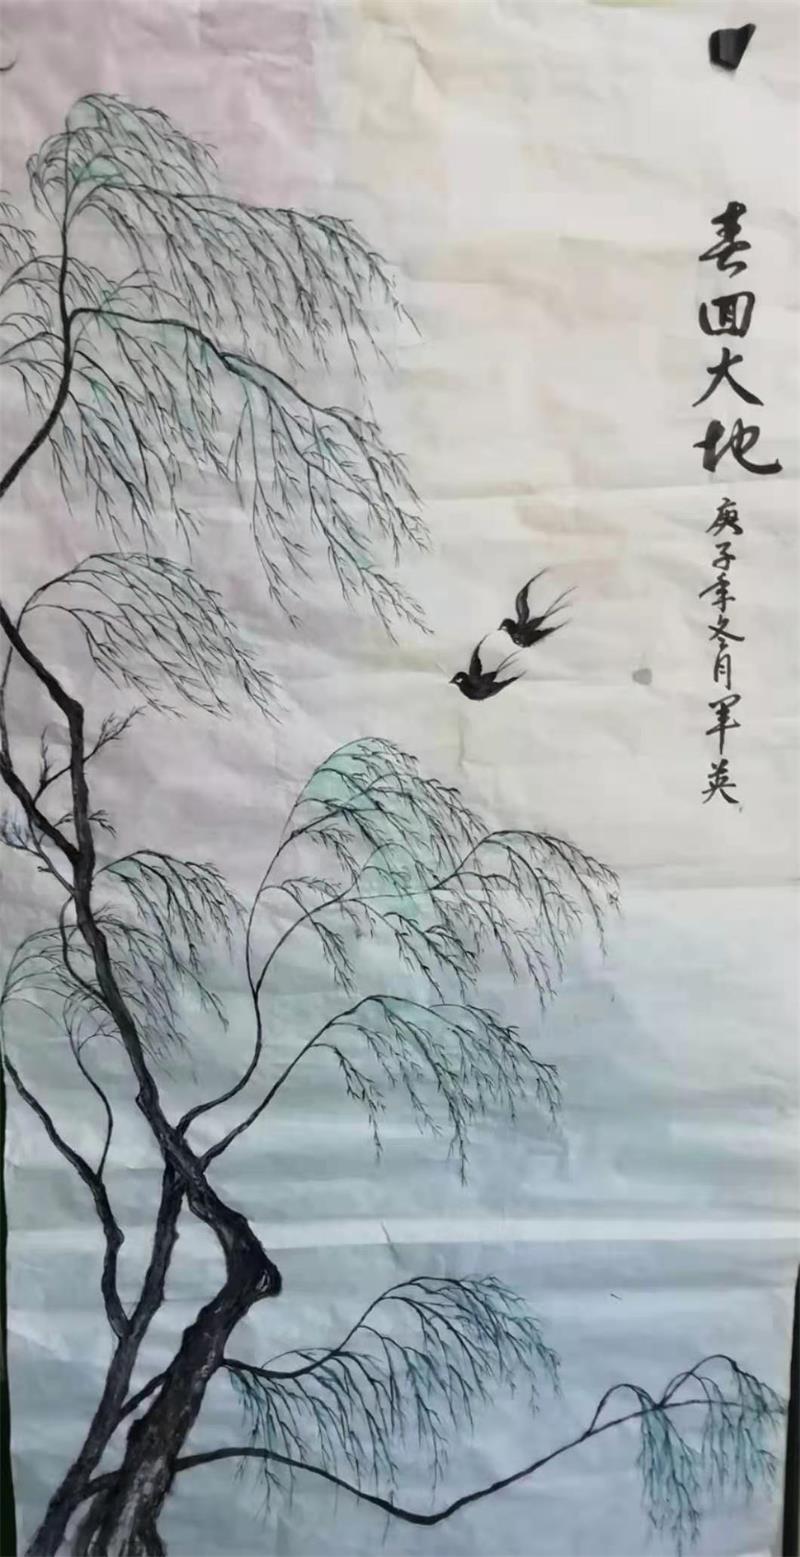 春回大地
庚子年冬月军英